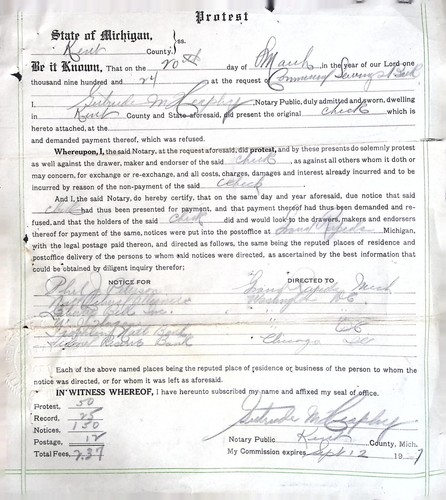 Protest
State of Michigan, } ss.
Kent County.
Be it Known, That on the 20th day of March in the year of our Lord one
thousand nine hundred and 24 at the request of Commercial Savings Bank
I, Gertrude M Heaphy, Notary Public, duly admitted and sworn, dwelling
in Kent County and State aforesaid, did present the original check which is
hereto attached, at the
and demanded payment thereof, which was refused.
Whereupon, I, the said Notary, at the request aforesaid, did protest, and by these presents do solemnly protest
as well against the drawer, maker and endorser of the said check, as against all others whom it doth or
may concern, for exchange or re-exchange, and all costs, charges, damages and interest already incurred and to be
incurred by reason of the non-payment of the said check.
And I, the said Notary, do hereby certify, that on the same day and year aforesaid, due notice that said
check had thus been presented for payment, and that payment thereof had thus been demanded and re-
fused, and that the holders of the said check did and would look to the drawers, makers and endorsers
thereof for payment of the same, notices were put into the postoffice at Grand Rapids Michigan,
with the legal postage thereon, and directed as follows, the same being the reputed places of residence and
postoffice delivery of the persons to whom said notices were directed, as ascertained by the best information that
could be obtained by diligent inquiry therefor;
NOTICE FOR DIRECTED TO
Grand Rapids Mich
Washington D.C.
" "
" "
Natl Bank " D.C.
Federal Reserve Bank Chicago Ill
Each of the above named places being the reputed place of residence or business of the person to whom the
notice was directed, or for whom it was left as aforesaid.
IN WITNESS WHEREOF, I have hereunto subscribed my name and affixed my seal of office.
Protest. 50
Record, 25
Notices, 150
Postage, 12
Total Fees, 237
Gertrude M Heaphy
Notary Public Kent County, Mich.
My Commission expires Sept 12 1927